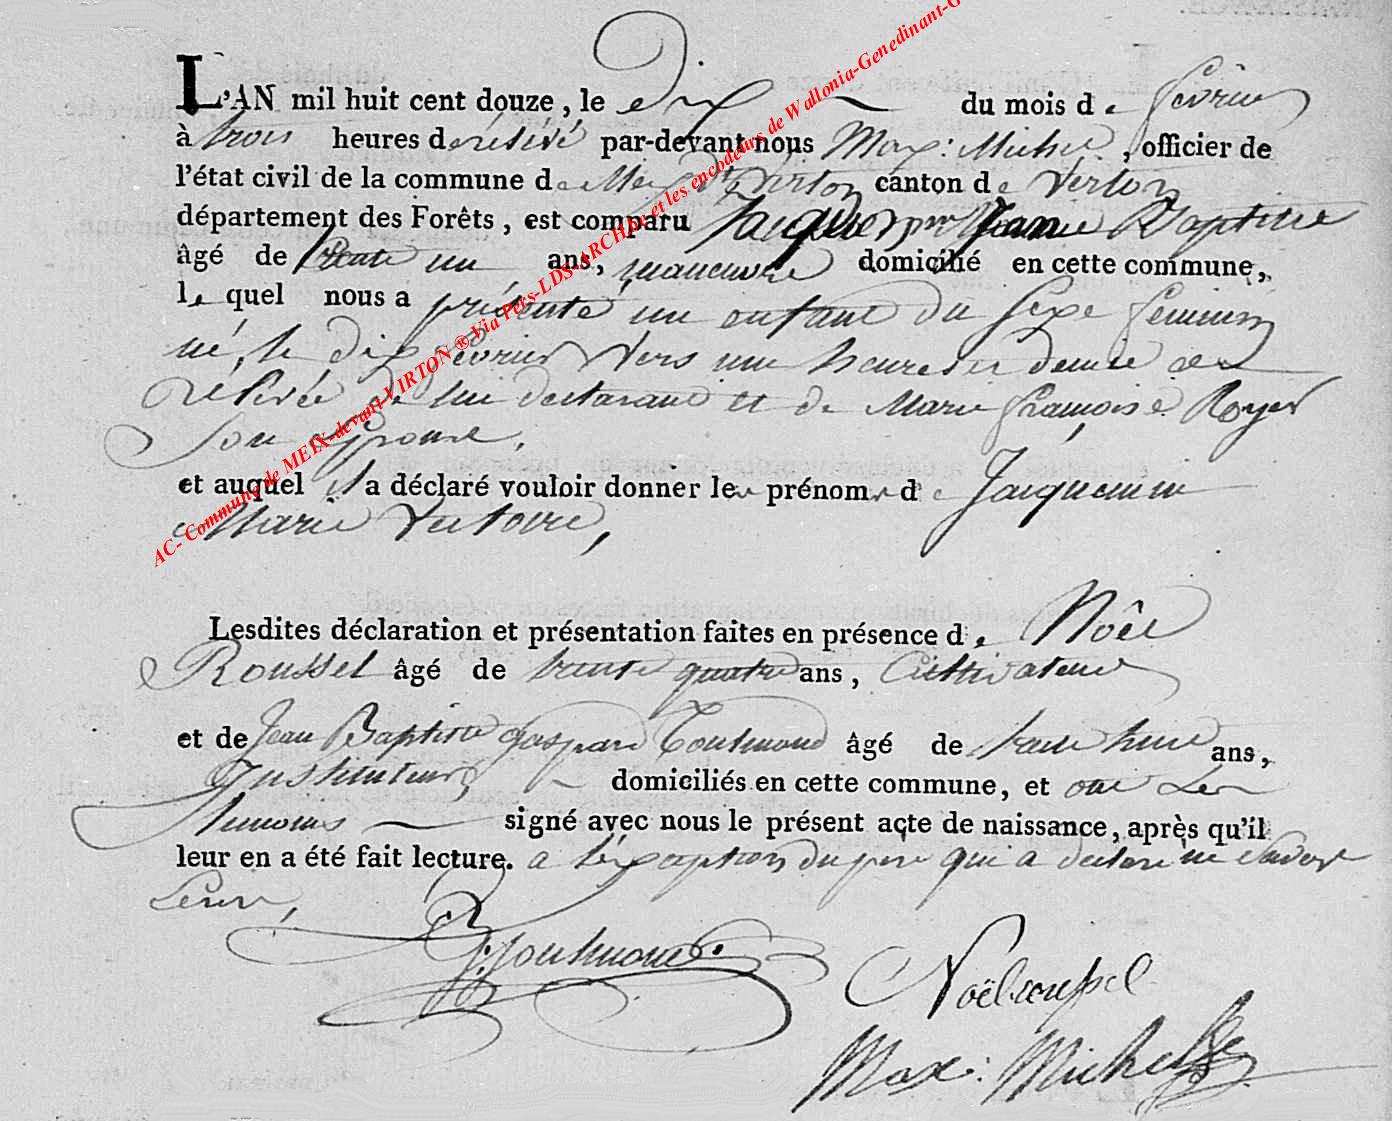 L'AN mil huit cent douze, le dix du mois de février
à trois heures de rélévé par-devant nous Max: Michel, officier de
l'état civil de la commune de Meix dt Virton canton de Virton
département des Forêts, est comparu Jacques Jean Baptiste
âgé de trente un ans, manœuvre domicilié en cette commune,
lequel nous a présenté un enfant du sexe féminin
né, le dix février vers une heure et demie de
rélévée de lui déclarant et de Marie françoise Royer
son épouse,
et auquel il a déclaré vouloir donner les prénoms de
Marie Victoire,
Lesdites déclaration et présentation faites en présence de Noêl
Roussel âgé de trente quatre ans, Cultivateur
et de Jean Baptiste gaspard Toutmond âgé de trente ans,
Instituteur, domiciliés en cette commune, et ont les
témoins signé avec nous le présent acte de naissance, après qu'il
leur en a été fait lecture. a l'éxception du pere qui a declaré ne savoir
Noël roussel
Max: Michel
AC- Commune de MEIX-devant-VIRTON ® Via Pers-LDS-ARCHbe et les encodeurs de Wallonia-Genedinant-G